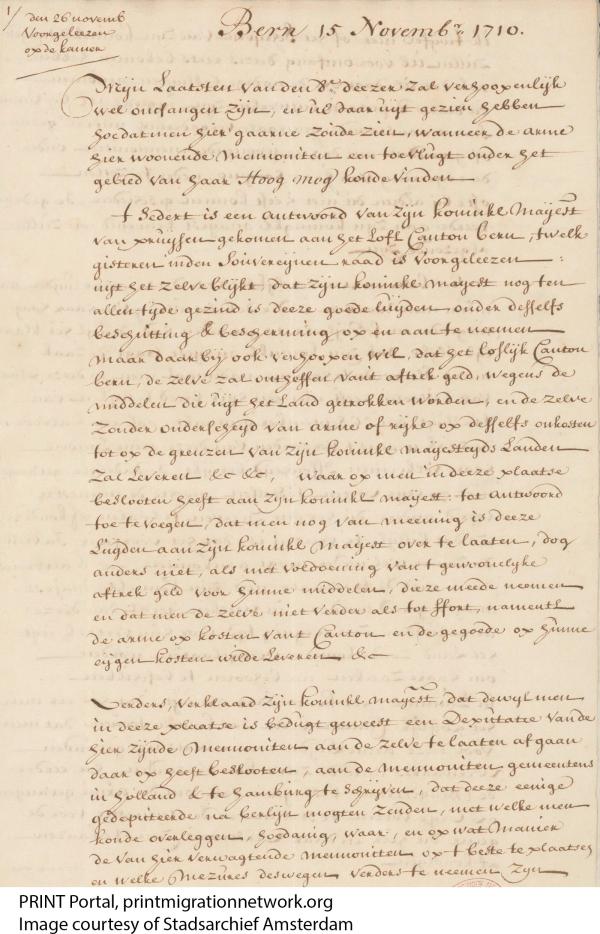 1/
den 26 novemb
Voorgeleezen
op de kamer
Bern 15 Novembr. 1710.
Mijn Laatsten van den 8e. deezer zal verhoopenlijk
wel ontfangen zijn, en UE daar uijt gezien hebben
hoedat men hier gaarne zoude zien, wanneer de arme
hier woonende Mennoniten een toevlugt onder het
gebied van haar Hoog Mog konde vinden
t Sedert is een antwoord van zijn koninkl Mayest
van pruijssen gekomen aan het Lofl Canton bern, 't welk
gisteren inden Souvereijnen raad is voorgeleezen:
uijt het zelve blijkt, dat zijn koninkl mayest nog ten
allen tijde gezind is deeze goede luijden onder desselfs
beschutting & bescherming op en aan te neemen
Maar daar bij ook verhoopen wil, dat het loflijk Canton
bern, de zelve zal ontheffen van't aftrek geld, wegens de
middelen die uijt het Land getrokken worden, en de zelve
Zonder onderscheyd van arme of rijke op desselfs onkosten
tot op de grenzen van zijn koninkl mayesteyds Landen
Zal Leveren &c &c, waar op men in deeze plaatse
beslooten heeft aan zijn koninkl mayest: tot antwoord
toe te voegen, dat men nog van meening is deeze
Luyden aan zijn koninkl Mayest over te laaten, dog
anders niet, als met voldoening van 't gewoonelyke
aftrek geld voor hunne middelen, die ze meede neemen
en dat men de zelve niet verder als tot ffort, namentl
de arme op kosten van't Canton en de gegoede op hunne
eijgen kosten wilde Leveren &c
Verders, verklaard zijn koninkl mayest, dat dewyl men
in deeze plaatse is bedugt geweest een Deputatie van de
hier zijnde Mennoniten aan de zelve te laaten afgaan
daar op heeft beslooten, aan de Mennoniten gemeentens
in Holland & te Hamburg te schrijven, dat deeze eenige
gedeputeerde na berlijn mogten zenden, met welke men
konde overleggen, hoedanig, waar, en op wat Manier
de van hier verwagtende mennoniten op 't beste te plaatsen
en welke mezures deswegen verders te neemen zijn
PRINT Portal, printmigrationnetwork.org
Image courtesy of Stadsarchief Amsterdam